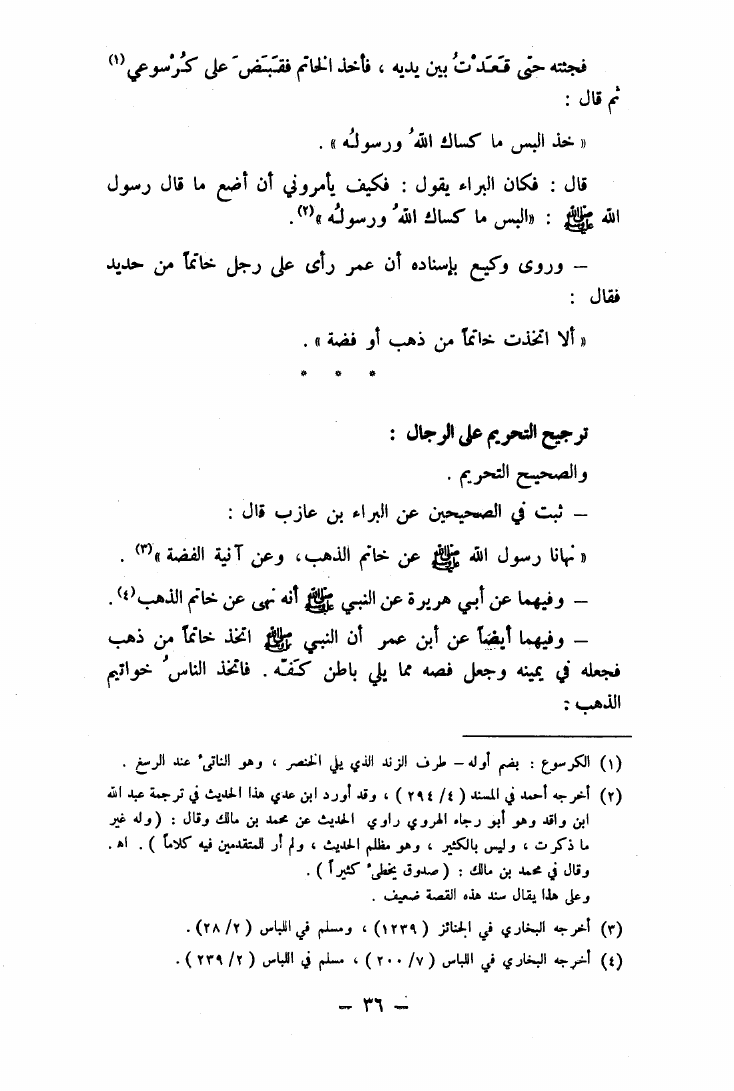 فجئته حتى قَعَدْتُ بين يديه ، فأخذ الخاتم فقَبَضَ على كُرْسوعي(١)
ثم قال :
« خذ البس ما كساك اللهُ ورسولُه » .
قال : فكان البراء يقول : فكيف يأمروني أن أضع ما قال رسول
الله ﷺ : «البس ما كساك اللهُ ورسولُه »(٢).
– وروى وكيع بإسناده أن عمر رأى على رجل خاتماً من حديد
فقال :
« ألا اتخذت خاتماً من ذهب أو فضة » .
* * *
ترجيح التحريم على الرجال :
والصحيح التحريم .
– ثبت في الصحيحين عن البراء بن عازب قال :
« نهانا رسول الله ﷺ عن خاتم الذهب، وعن آنية الفضة »(٣) .
– وفيهما عن أبي هريرة عن النبي ﷺ أنه نهى عن خاتم الذهب(٤).
– وفيهما أيضاً عن أبن عمر أن النبي ﷺ اتخذ خاتماً من ذهب
فجعله في يمينه وجعل فصه مما يلي باطن كَفّه . فاتخذ الناسُ خواتيم
الذهب :
(١) الكرسوع : بضم أوله – طرف الزند الذي يلي الخنصر ، وهو الناتىء عند الرسغ .
(٢) أخرجه أحمد في المسند ( ٤/ ٢٩٤ ) ، وقد أورد ابن عدي هذا الحديث في ترجمة عبد الله
ابن واقد وهو أبو رجاء الهروي راوي الحديث عن محمد بن مالك وقال : (وله غير
ما ذكرت ، وليس بالكثير ، وهو مظلم الحديث ، ولم أر للمتقدمين فيه كلاماً ) . اهـ.
وقال في محمد بن مالك : ( صدوق يخطىء كثيراً ) .
وعلى هذا يقال سند هذه القصة ضعيف .
(٣) أخرجه البخاري في الجنائز ( ١٢٣٩) ، ومسلم في اللباس ( ٢/ ٢٨) .
(٤) أخرجه البخاري في اللباس ( ٧/ ٢٠٠ ) ، مسلم في اللباس ( ٢/ ٢٣٩ ) .
– ٣٦ –